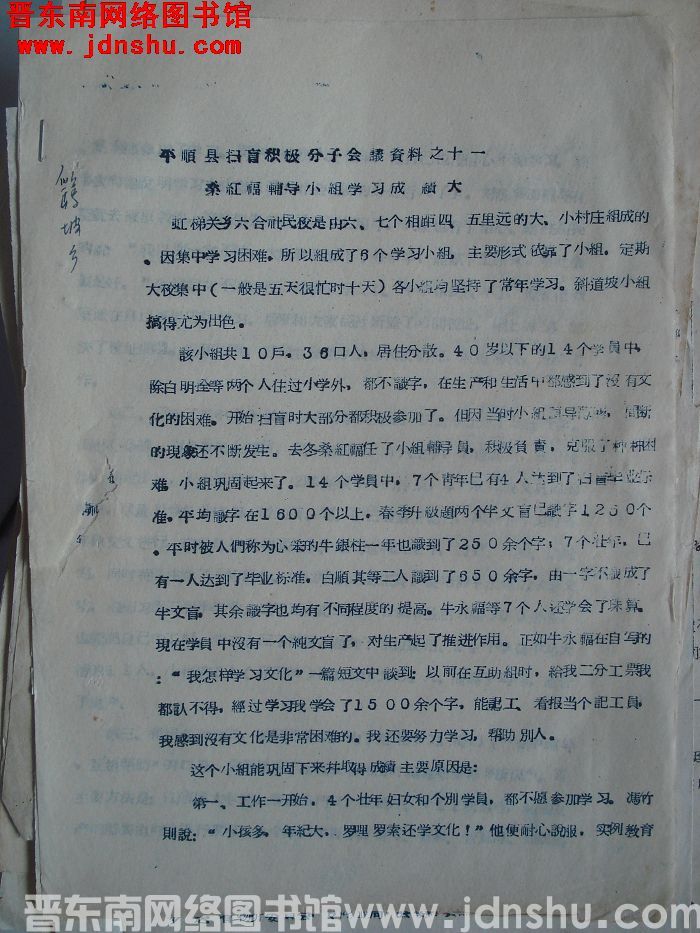 晋东南网络图书馆
www.jdnshu.com
平順县扫盲积极分子会議資料之十一
桑紅福輔导小組学习成績大
坡乡
虹梯关乡六合社民校是由六、七个相距四、五里远的大、小村庄組成的
、因集中学习困难，所以組成了6个学习小組，主要形式依靠了小組，定期
大校集中（一般是五天很忙时十天）各小組均坚持了常年学习。斜道坡小組
搞得尤为出色。
該小組共10戶，36口人，居住分散。40岁以下的14个学員中，
除白明全等两个人住过小学外，都不識字，在生产和生活中都感到了沒有文
化的困难。开始扫盲时大部分都积极参加了。但因当时小組 导 ，間断
的現象还不断发生。去冬桑紅福任了小組輔导員，积极負責，克服了种种困
难，小組巩固起来了。14个学員中，7个青年已有4人达到了扫盲毕业标
准，平均識字在1600个以上，春季升級趙两个半文盲已識字1250个
。平时被人們称为心笨的牛銀柱一年也識到了250余个字；7个壮年，已
有一人达到了毕业标准，白順其等二人識到了650余字，由一字不識成了
半文盲，其余識字也均有不同程度的提高。牛永福等7个人还学会了珠算。
現在学員中沒有一个純文盲了，对生产起了推进作用。正如牛永福在自写的
：“我怎样学习文化”一篇短文中談到：以前在互助組时，給我二分工票我
都认不得，經过学习我学会了1500余个字，能記工、看报当个記工員，
我感到沒有文化是非常困难的。我还要努力学习，帮助別人。
这个小組能巩固下来并取得成績主要原因是：
第一、工作一开始，4个壮年妇女和个別学員，都不愿参加学习。馮竹
則說：“小孩多，年紀大，罗哩罗索还学文化！”他便耐心說服，实例教育
晋东南网络图书馆 www.jdnshu.com